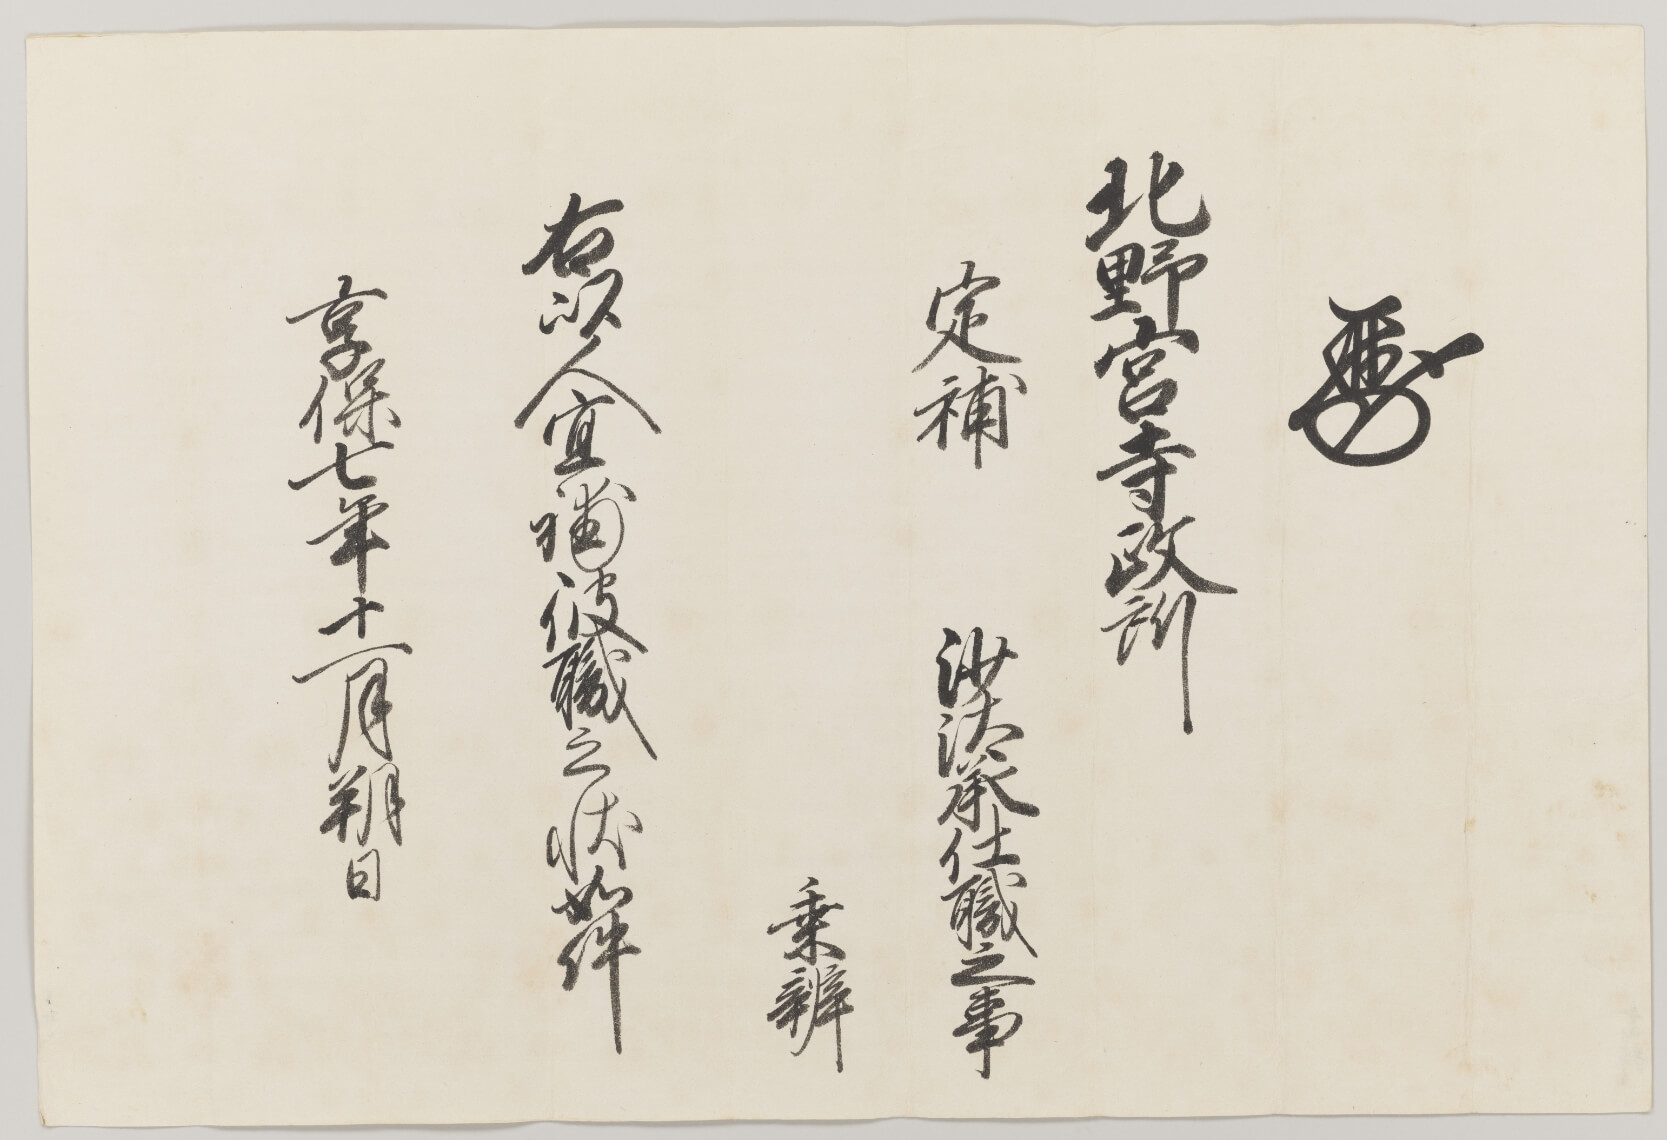 北野宮寺政所
定補　沙汰承仕職之事
乗辨
右以人宜補彼職之状如件
享保七年十一月朔日